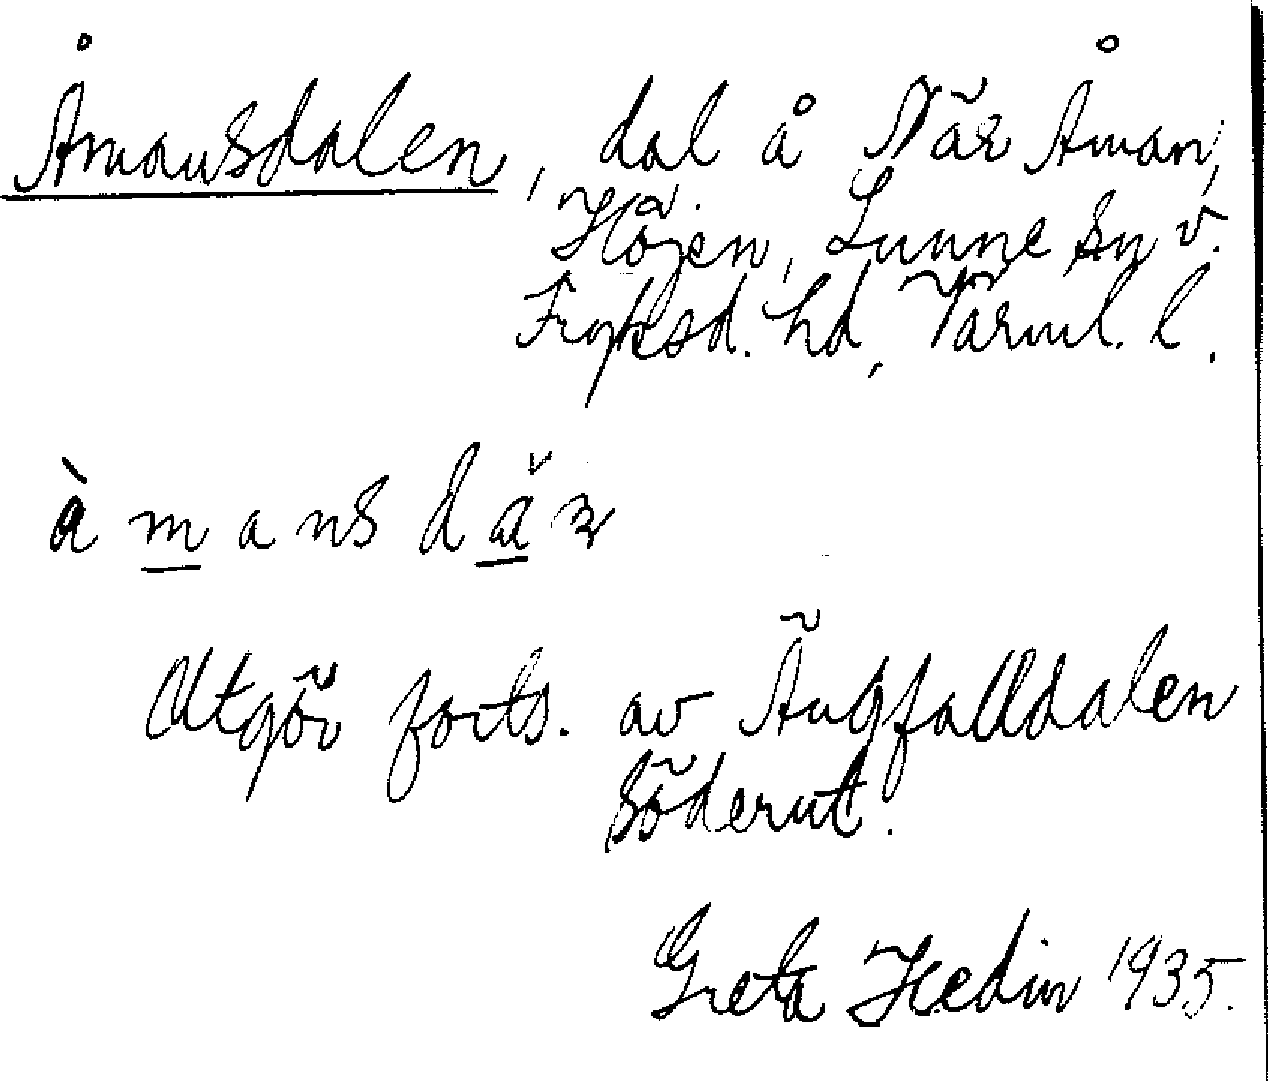 Åmansdalen, dal å När Åman,
Höjen, Lunne sn v.
Fryksd. hd, Värml. l.
à m a n s d ä
Utgör forts. av Ängfalldalen
söderut.
Greta Hedin 1935.